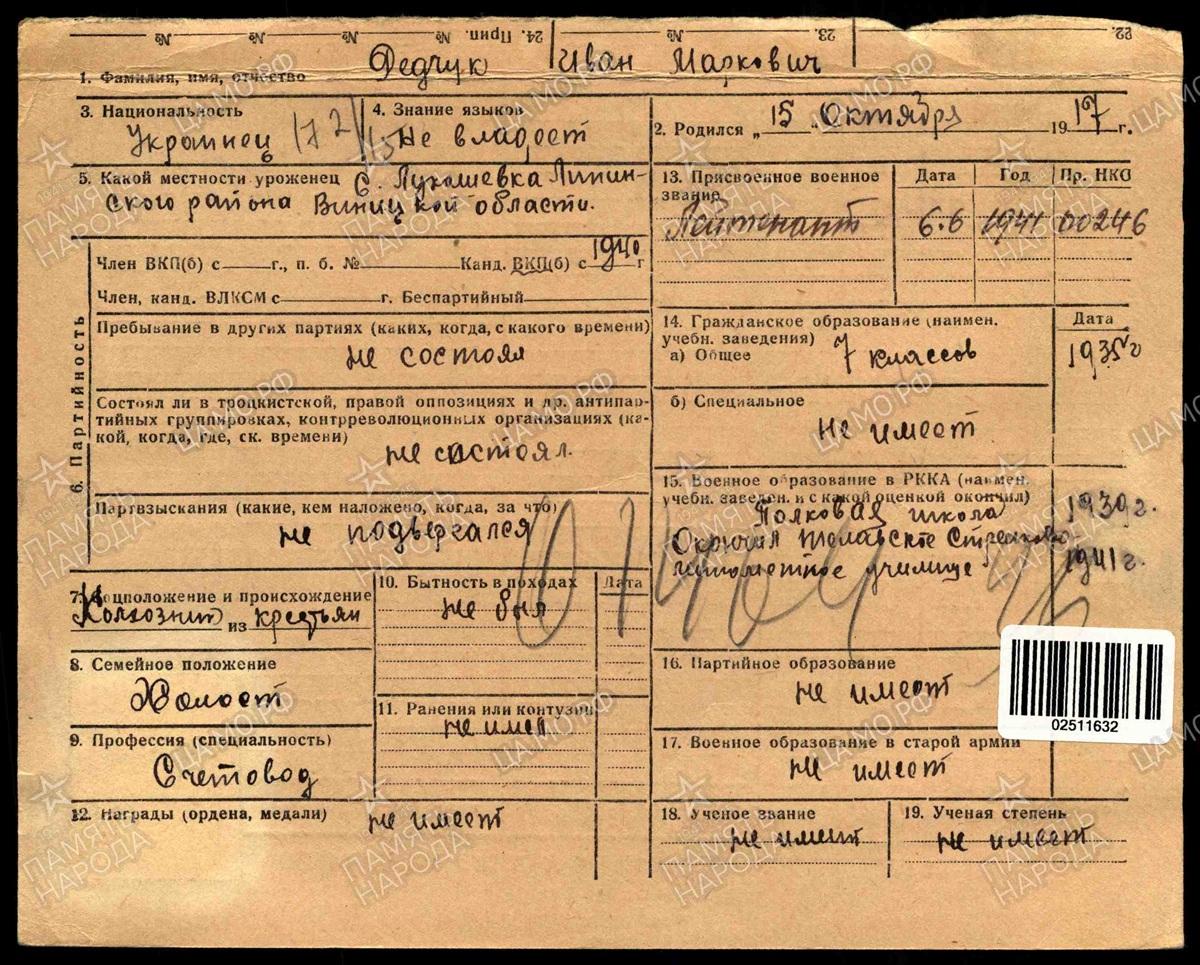 24. Прип. № № № № №
23.
22.
1. Фамилия, имя, отчество Федчук Иван Маркович
3. Национальность Украинец
172/15
4. Знание языков Не владеет
2. Родился „15 Октября 1917 г.
5. Какой местности уроженец с. Лукашевка Липин-
ского района Виницкой области.
13. Присвоенное военное звание
Дата Год Пр. НКО
Лейтенант 6.6 1941 00246
6. Партийность
Член ВКП(б) с г., п. б. № Канд. ВКП(б) с 1940 г
Член, канд. ВЛКСМ с г. Беспартийный
Пребывание в других партиях (каких, когда, с какого времени)
не состоял
Состоял ли в троцкистской, правой оппозициях и др. антипар-
тийных группировках, контрреволюционных организациях (ка-
кой, когда, где, ск. времени)
не состоял.
Партвзыскания (какие, кем наложено, когда, за что)
не подвергался
7. Соцположение и происхождение
Колхозник из крестьян
8. Семейное положение
Холост
9. Профессия (специальность)
Счетовод
10. Бытность в походах Дата
не был
11. Ранения или контузии
не имел
12. Награды (ордена, медали) не имеет
14. Гражданское образование (наимен.
учебн. заведения) Дата
а) Общее 7 классов 1935г
б) Специальное
не имеет
15. Военное образование в РККА (наимен.
учебн. заведен. и с какой оценкой окончил)
Полковая школа 1939г.
Окончил Стрелково-
пулеметное училище 1941 г.
16. Партийное образование
не имеет
17. Военное образование в старой армии
не имеет
18. Ученое звание
не имеет
19. Ученая степень
не имеет
02511632
ПАМЯТЬ НАРОДА
ЦАМО.РФ